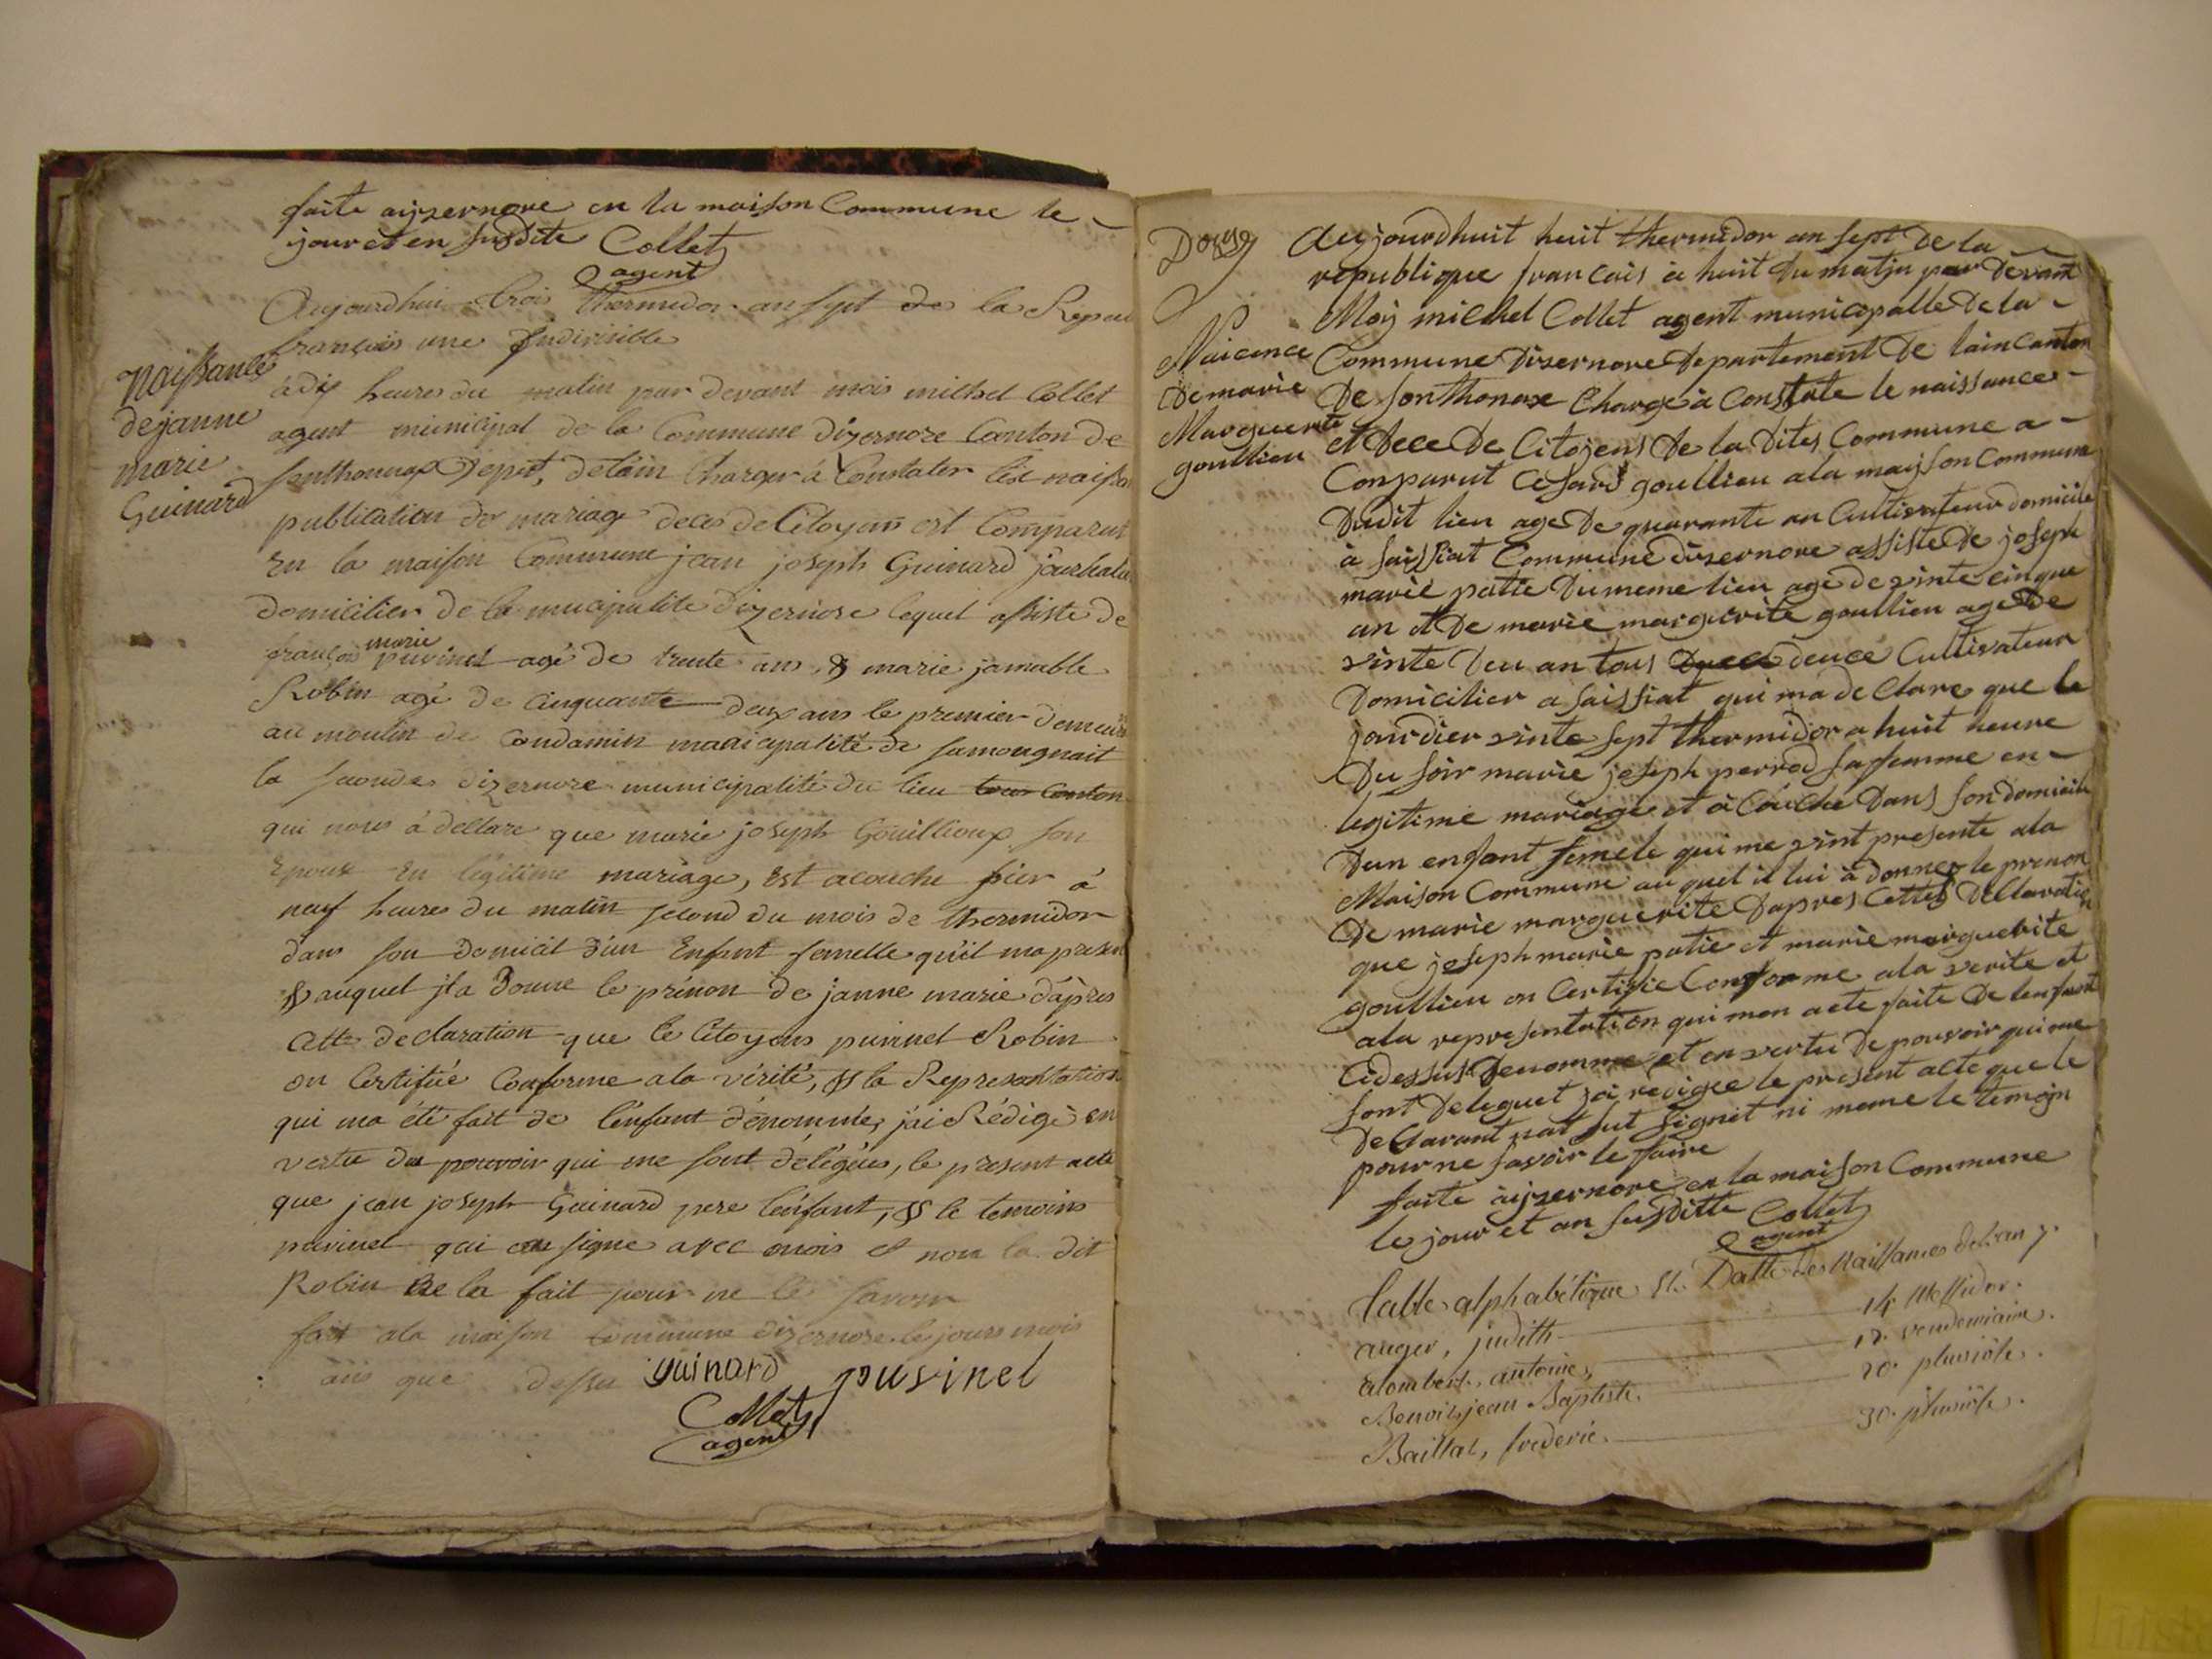 faite aizernore en la maison Commune le
jour et en susdite Collet
agent
Naissance
de janne
marie
Guinard
Aujourdhui trois thermidor an sept de la Repu
françois une Indivisible
à dix heures du matin par devant mois michel Collet
agent municipal de la Commune dizernore Canton de
sonthonnax Dept, de lain Charger à Constater les naissa
publication de mariage deces de Citoyens est Comparut
En la maison Commune jean joseph Guinard journalie
domicilier de la mucipalite dizernore lequel assiste de
françois marie puvinel agé de trente ans & marie jamable
Robin agé de cinquante deux ans le premier demeur
au moulin de Condamin municipalité de samougnait
la seconde dizernore municipalité du lieu tour Canton
qui nous à dellare que marie joseph Gouillioux son
Epouse En légitime mariage, Est acouche hier à
neuf heures du matin second du mois de thermidor
dans son Domicil d'un Enfant femelle qu'il ma presen
& auquel jla Donne le prenon de janne marie d'après
cette declaration que le Citoyens puvinel Robin
on Certifiée Conforme ala vérité, & la Representation
qui ma été fait de l'enfant dénommée, j'ai Rédigé en
vertu du pouvoir qui me sont délégués, le present acte
que jean joseph Guinard pere l'enfant, & le temoins
puvinel qui on signe avec mois et non la dit
Robin ne la fait pour ne le savoir
fait ala maison commune dizernore le jours mois
ans que dessu guinard pusinel
Collet
agent
Douse
Naicence
de marie
Marguerite
goullieu
Aujjourdhuit huit thermidor an sept de la
republique francais à huit du matjn par devant
Moÿ michel Collet agent municopalle de la
Commune dizernore departement de lain canton
de sonthonax Charge à Constate le naissance
et dece de Citojens de la dites Commune a
Comparut Cesard goullieu ala maijson commune
dudit lieu age de quarante an Cultivateur domicile
à saissiat Commune dizernore assiste de joseph
marie patie du meme lieu age de vinte cinque
an et de marie marguerite goullieu age de
vinte deu an tous deuce Cultivateur
domicilier a saissiat qui ma declare que le
jourdier vinte sept thermidor a huit heure
du soir marie joseph perrod sa femme en
legitime mariage et à Couche dans son domicile
dun enfant femele qui me vint presente ala
Maison Commune auquel il lui à donner le prenon
de marie marguerite dapres Cettes dellaration
que joseph marie patie et marie marguerite
goullieu on Certifie Conforme ala verite et
ala representation qui mon acte faite de lenfant
cidessus denomme et en vertu de pouvoir qui me
sont deleguet jai redigee le present acte que le
declarant nat sut signet ni meme le temojn
pour ne savoir le faire
faite àijzernore en la maison Commune
le jour et an susditte Collet
agent
Table alphabétique et Datte des Naissances de l'an 7.
auger, judith 14 Messidor.
alombert, antoine, 12. vendemiaire.
Benoit, jean Baptiste. 20. pluviôse.
Baillat, frederic. 30. pluviôse.